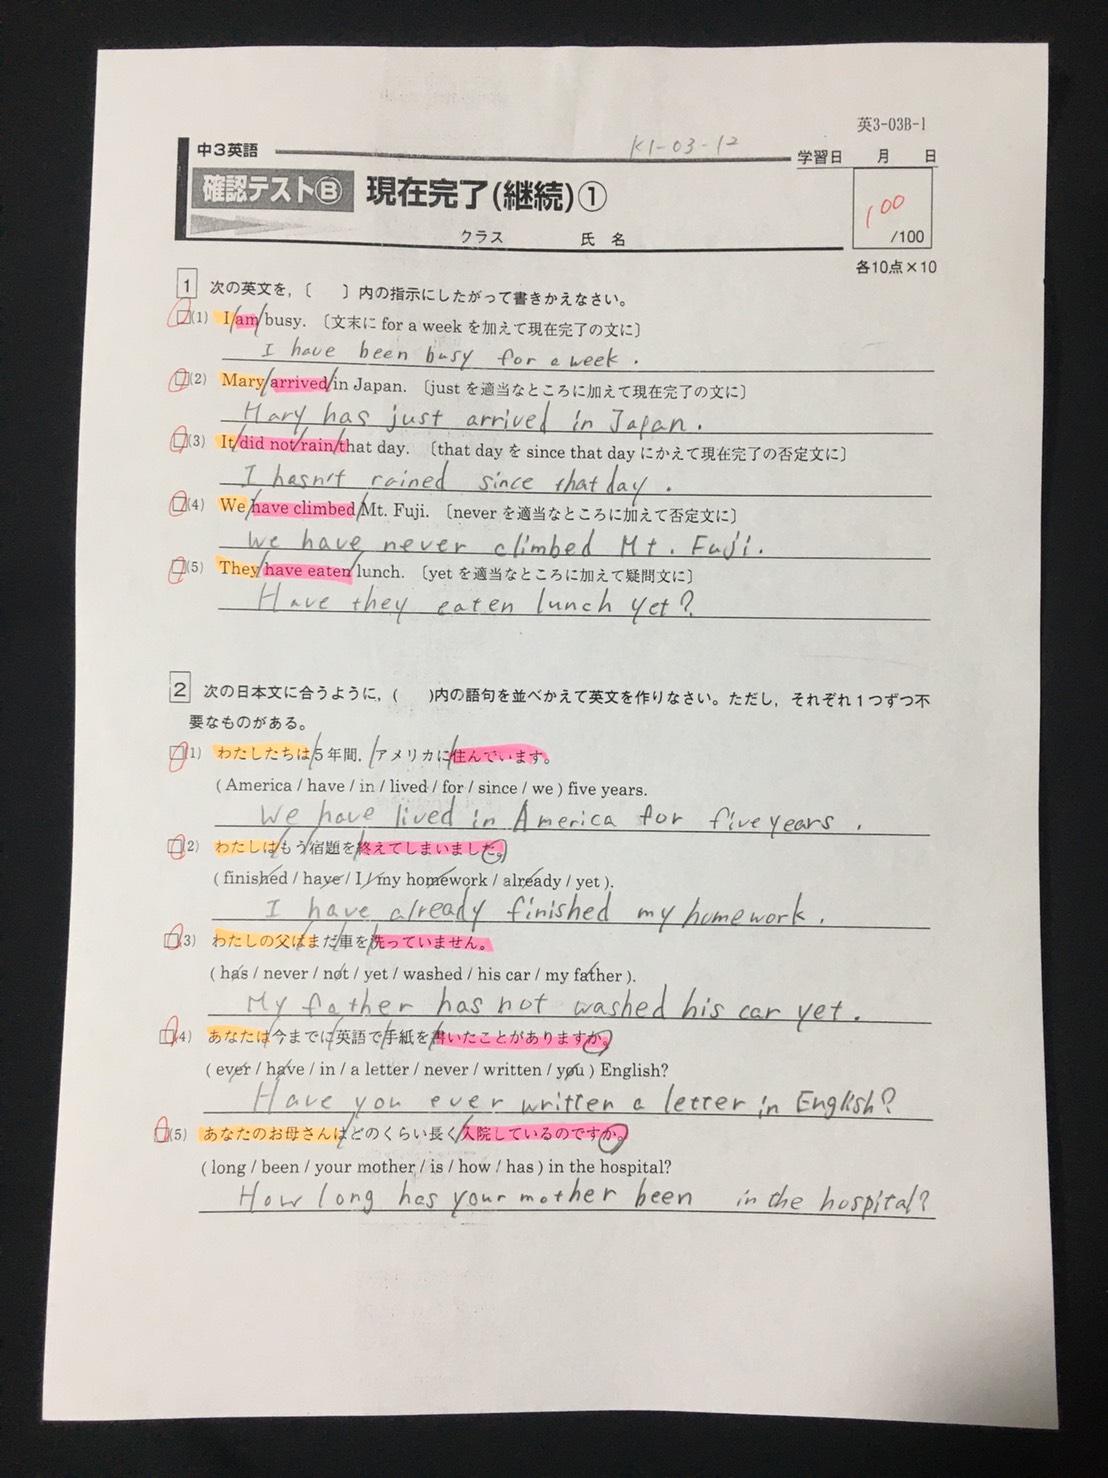 英3-03B-1
中3英語
K1-03-12
学習日 月 日
確認テストⒷ 現在完了(継続)①
100
/100
クラス 氏名
各10点×10
1 次の英文を,〔 〕内の指示にしたがって書きかえなさい。
□(1) I/am/busy. 〔文末に for a week を加えて現在完了の文に〕
I have been busy for a week.
□(2) Mary/arrived/in Japan. 〔just を適当なところに加えて現在完了の文に〕
Mary has just arrived in Japan.
□(3) It/did not/rain/that day. 〔that day を since that day にかえて現在完了の否定文に〕
I hasn't rained since that day.
□(4) We/have climbed/Mt. Fuji. 〔never を適当なところに加えて否定文に〕
We have never climbed Mt. Fuji.
□(5) They/have eaten/lunch. 〔yet を適当なところに加えて疑問文に〕
Have they eaten lunch yet?
2 次の日本文に合うように,( )内の語句を並べかえて英文を作りなさい。ただし,それぞれ1つずつ不
要なものがある。
□(1) わたしたちは/5年間,/アメリカに/住んでいます。
( America / have / in / lived / for / since / we ) five years.
We have lived in America for five years.
□(2) わたしは/もう/宿題を/終えてしまいました。
( finished / have / I / my homework / already / yet ).
I have already finished my homework.
□(3) わたしの父は/まだ/車を/洗っていません。
( has / never / not / yet / washed / his car / my father ).
My father has not washed his car yet.
□(4) あなたは/今までに/英語で/手紙を/書いたことがありますか。
( ever / have / in / a letter / never / written / you ) English?
Have you ever written a letter in English?
□(5) あなたのお母さんは/どのくらい長く/入院しているのですか。
( long / been / your mother / is / how / has ) in the hospital?
How long has your mother been in the hospital?